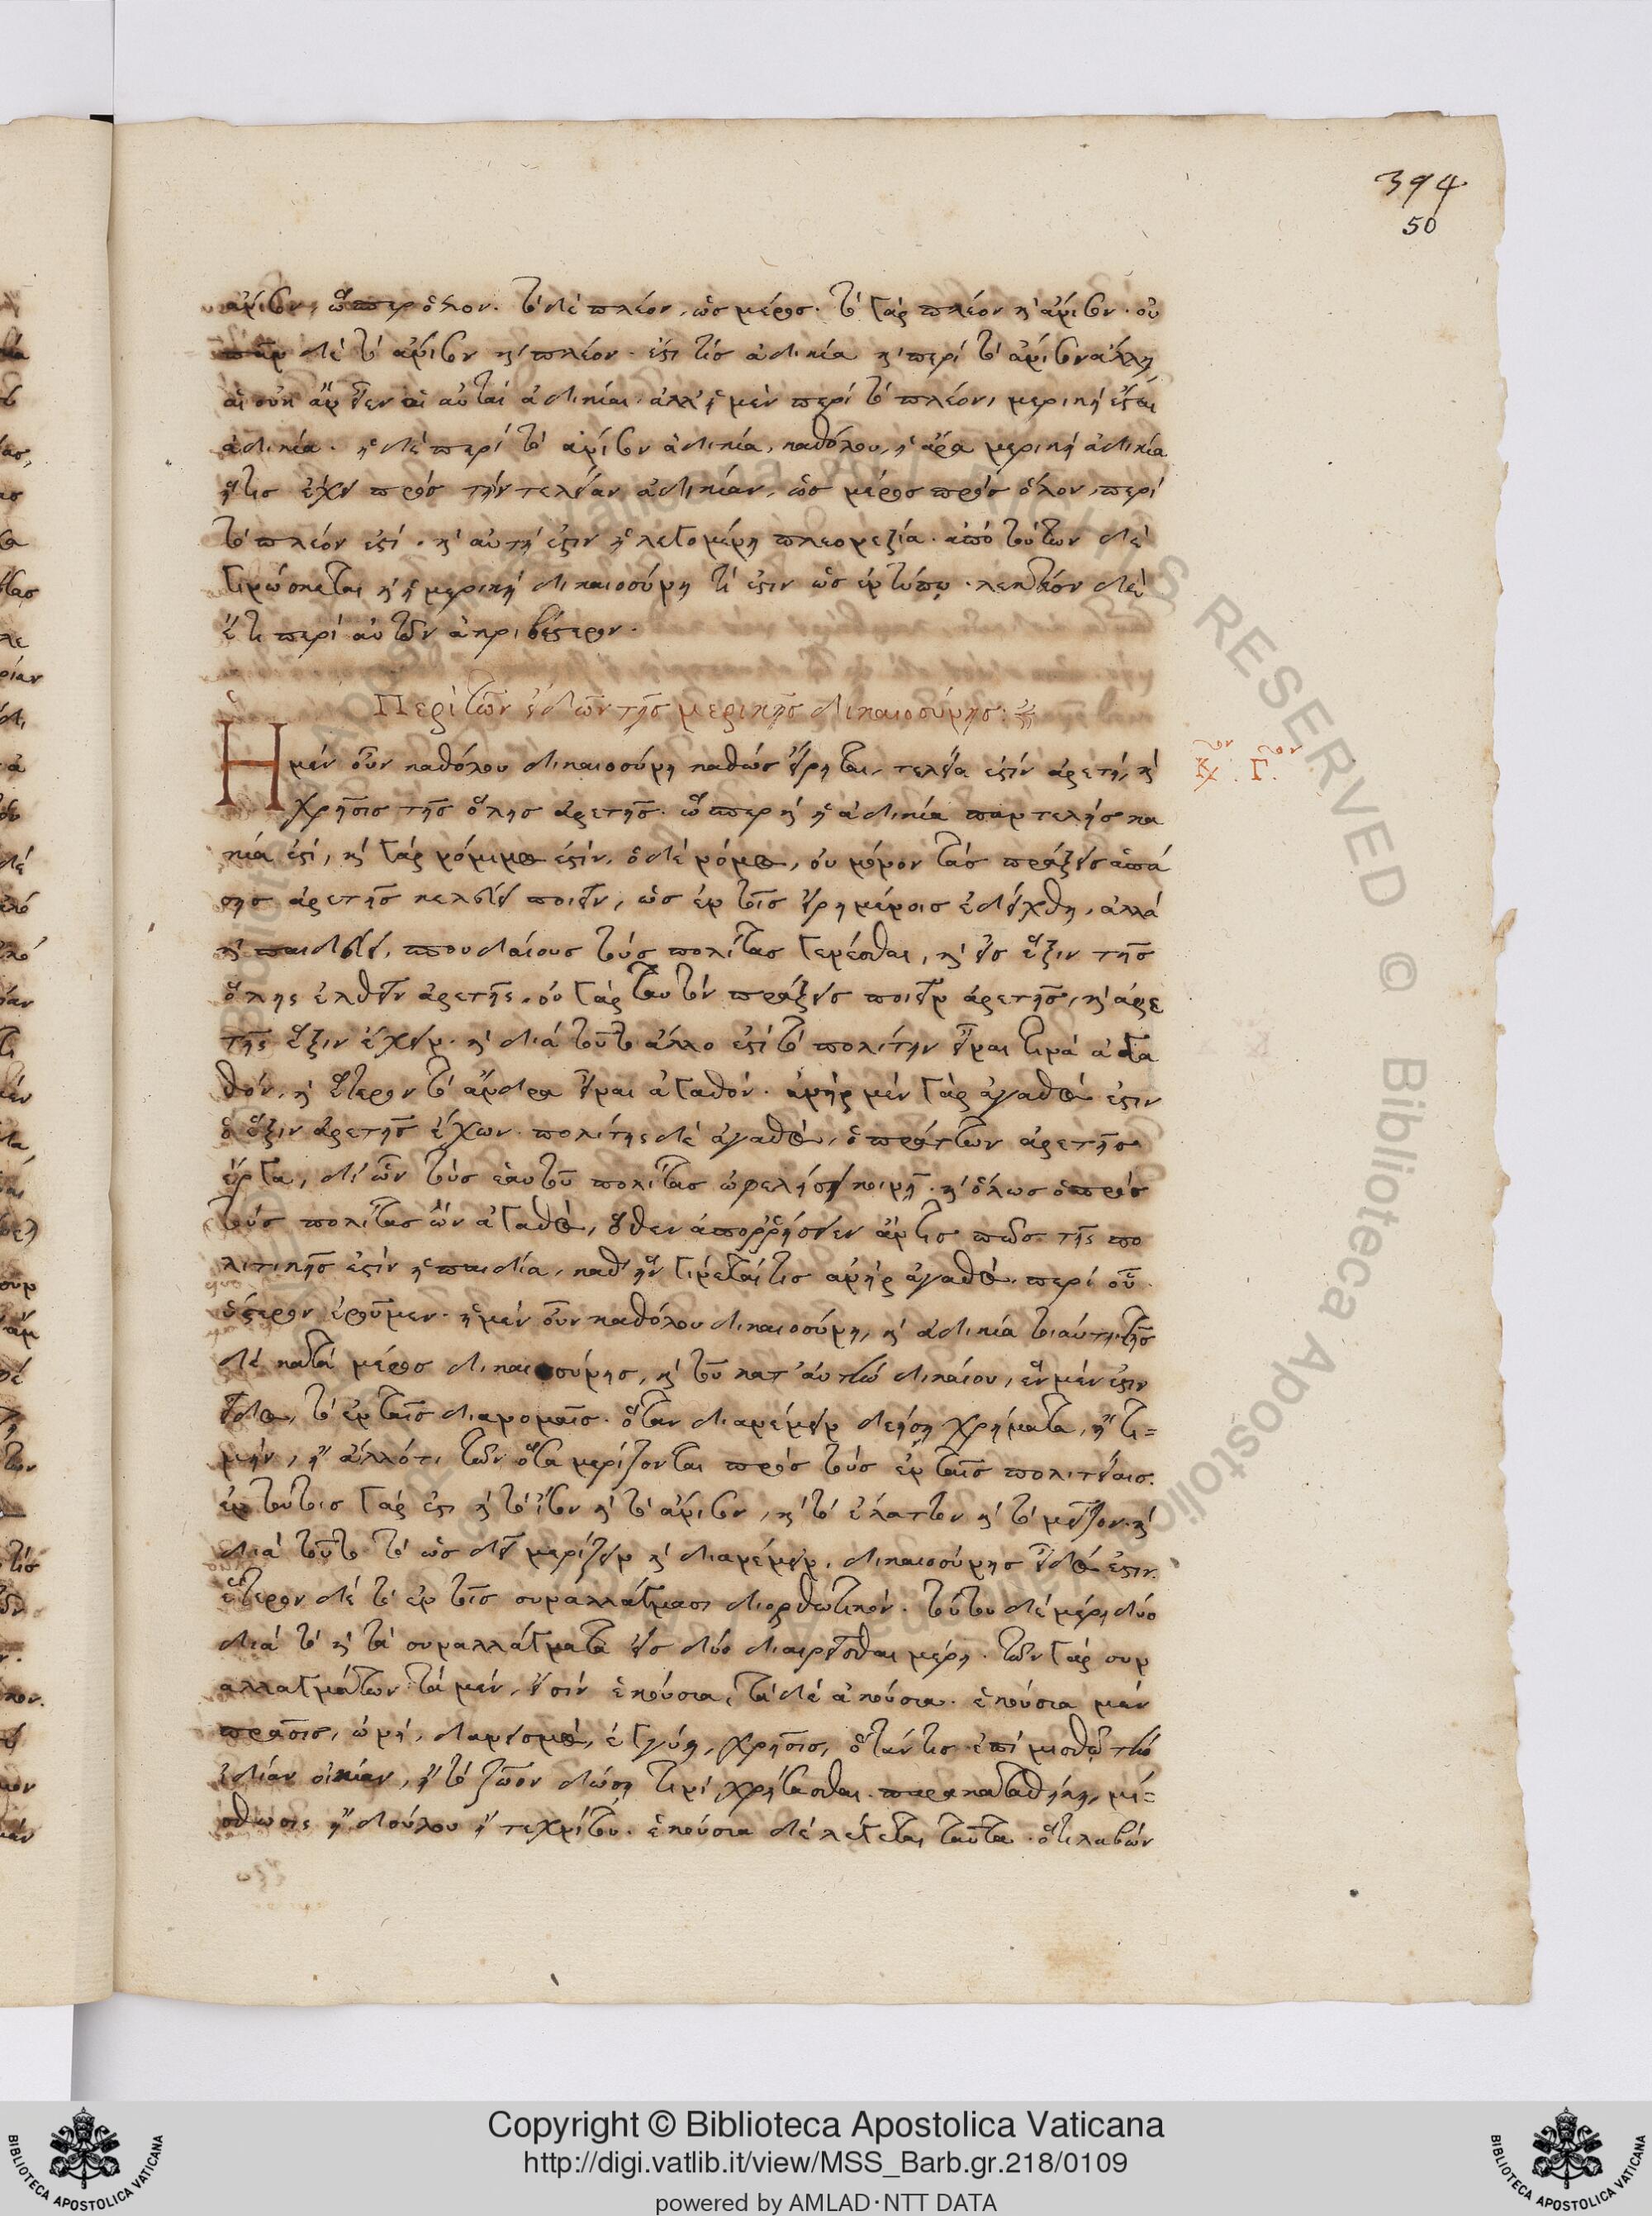 394
50
ἄνισον, ὥσπερ ὅλον. τὸ δὲ πλέον, ὡς μέρος. τὸ γὰρ πλέον καὶ ἄνισον. οὐ
πᾶν δὲ τὸ ἄνισον καὶ πλέον. ἔστι τίς ἀδικία καὶ περὶ τὸ ἄνισον ἄλλη,
αἳ οὐκ ἂν εἶεν αἱ αὐταὶ ἀδικίαι. ἀλλ' ἡ μὲν περὶ τὸ πλέον, μερικὴ ἔσται
ἀδικία. ἡ δὲ περὶ τὸ ἄνισον ἀδικία, καθόλου, ἡ ἄρα μερικὴ ἀδικία
ἥτις ἔχει πρὸς τὴν τελείαν ἀδικίαν, ὡς μέρος πρὸς ὅλον, περὶ
τὸ πλέον ἐστί. καὶ αὐτή ἐστιν ἡ λεγομένη πλεονεξία. ἀπὸ τούτων δὲ
γινώσκεται καὶ ἡ μερικὴ δικαιοσύνη τί ἐστιν ὡς ἐν τύπῳ. λεκτέον δὲ
ἔτι περὶ αὐτῶν ἀκριβέστερον.
Περὶ τῶν εἰδῶν τῆς μερικῆς δικαιοσύνης:
Ἡ μὲν οὖν καθόλου δικαιοσύνη καθὼς εἴρηται, τελεία ἐστὶν ἀρετή, καὶ
χρῆσις τῆς ὅλης ἀρετῆς. ὥσπερ καὶ ἡ ἀδικία παντελής κα
κία ἐστί, καὶ γὰρ νόμιμος ἐστίν. ὁ δὲ νόμος, οὐ μόνον τὰς πράξεις ἁπά
σης ἀρετῆς κελεύει ποιεῖν, ὡς ἐν τοῖς εἰρημένοις ἐδείχθη, ἀλλὰ
καὶ παιδεύει, σπουδαίους τοὺς πολίτας γενέσθαι, καὶ εἰς ἕξιν τῆς
ὅλης ἐλθεῖν ἀρετῆς. οὐ γὰρ ταυτὸν πράξεις ποιεῖν ἀρετῆς, καὶ ἀρε
τῆς ἕξιν ἔχειν. καὶ διὰ τοῦτο ἄλλο ἐστὶ τὸ πολίτην εἶναι τινὰ ἀγα
θόν, καὶ ἕτερον τὸ ἄνδρα εἶναι ἀγαθόν. ἀνὴρ μὲν γὰρ ἀγαθός ἐστιν
ὁ ἕξιν ἀρετῆς ἔχων. πολίτης δὲ ἀγαθός, ὁ πράττων ἀρετῆς
ἔργα, δι' ὧν τοὺς ἑαυτοῦ πολίτας ὠφελήσει κοινῇ. καὶ ὅλως ὁ πρὸς
τοὺς πολίτας ὢν ἀγαθός, ὅθεν ἀπορρήσειεν ἄν τις πῶς τῆς πο
λιτικῆς ἐστὶν ἡ παιδία, καθ' ἣν γίνεταί τις ἀνὴρ ἀγαθός. περὶ οὗ
ὕστερον ἐροῦμεν. ἡ μὲν οὖν καθόλου δικαιοσύνη, καὶ ἀδικία τοιαύτη. τῆς
δὲ κατὰ μέρος δικαιοσύνης, καὶ τοῦ κατ' αὐτὴν δικαίου, ἓν μέν ἐστιν
εἶδος, τὸ ἐν ταῖς διανομαῖς. ὅταν διανέμειν δεήσῃ χρήματα, ἢ τι=
μὴν, ἢ ἄλλό τι τῶν ὅσα μερίζονται πρὸς τοὺς ἐν ταῖς πολιτείαις.
ἐν τούτοις γὰρ ἔστι καὶ τὸ ἴσον καὶ τὸ ἄνισον, καὶ τὸ ἔλαττον καὶ τὸ μεῖζον. καὶ
διὰ τοῦτο τὸ ὡς δεῖ μερίζειν καὶ διανέμειν, δικαιοσύνης εἶδός ἐστιν.
ἕτερον δὲ τὸ ἐν τοῖς συναλλάγμασι διορθωτικόν. τούτου δὲ μέρη δύο
διὰ τὸ καὶ τὰ συναλλάγματα εἰς δύο διαιρεῖσθαι μέρη. τῶν γὰρ συν
αλλαγμάτων τὰ μέν, εἰσὶν ἑκούσια, τὰ δὲ ἀκούσια. ἑκούσια μὲν
πρᾶσις, ὠνή, δανεισμός, ἐγγύη, χρῆσις, ὅταν τις ἐπὶ μισθῷ τὴν
ἰδίαν οἰκίαν, ἢ τὸ ζῷον δώσῃ τινὶ χρήσασθαι. παρακαταθήκη, μί=
σθωσις ἢ δούλου ἢ τεχνίτου. ἑκούσια δὲ λέγεται ταῦτα. ὅτι λαβὼν
Copyright © Biblioteca Apostolica Vaticana
http://digi.vatlib.it/view/MSS_Barb.gr.218/0109
powered by AMLAD·NTT DATA
BIBLIOTECA APOSTOLICA VATICANA
BIBLIOTECA APOSTOLICA VATICANA